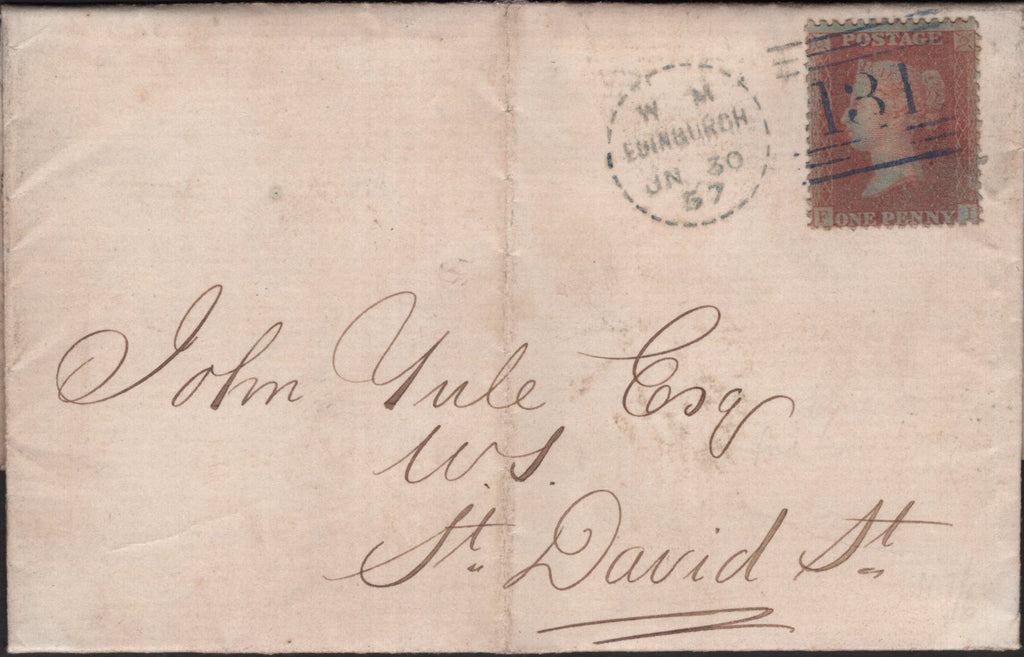 POSTAGE
131
W M
EDINBURGH
JN 30
57
ONE PENNY
John Yule Esq
W.S.
St. David St